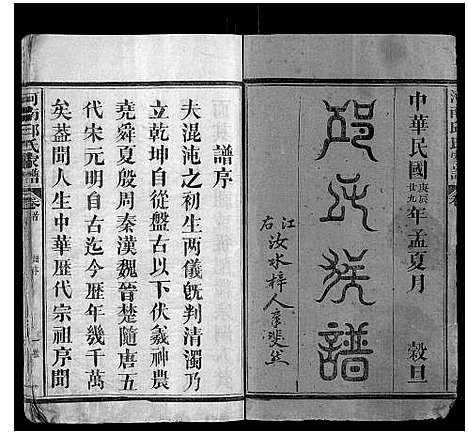 中華民國庚辰廿九年孟夏月　穀旦
邱氏族譜
江右
汝水梓人
譜序
夫混沌之初生两儀旣判清濁乃
立乾坤自從盤古以下伏羲神農
堯舜夏殷周秦漢魏晉楚隨唐五
代宋元明自古迄今歴年幾千萬
矣葢聞人生中華歴代宗祖序聞
河南邱氏家譜